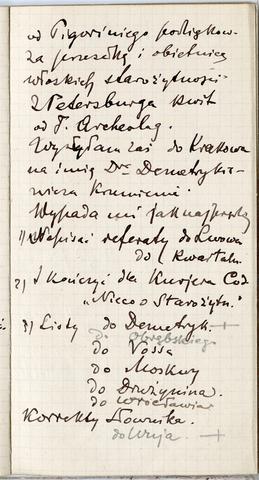 od Pigoriniego podziękow-
za przesyłkę i obietnicę
włoskich starożytności-
Z Petersburga kwit
od T. Archeolog.
Wysyłam zaś do Krakowa
na imię Dra Demetrykie-
wicza Krzemienie
Wypada mi jak najprędzej
1) Napisać referaty do Lwowa
do Kwartaln.
2) Skończyć dla Kurjera Cod.
„Nieco o Starożytn."
3) Listy do Demetryk. +
do Obrąbskiego
do Vossa
do Moskwy
do Drużynina.
do Wrocławia
Korrekty Słownika.
do Wuja. +